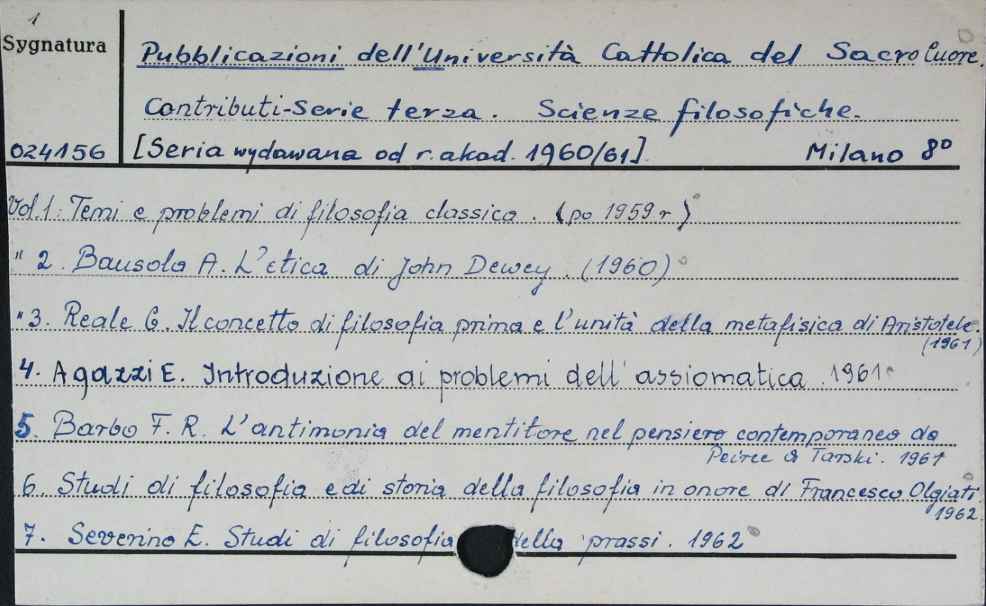 1
Sygnatura
Pubblicazioni dell'Università Cattolica del Sacro Cuore.
Contributi-Serie terza. Scienze filosofiche.
024156 [Seria wydawana od r. akad. 1960/61]. Milano 8°
Vol.1. Temi e problemi di filosofia classica. (po 1959 r)
" 2. Bausola A. L'etica di John Dewey. (1960)
" 3. Reale G. Il concetto di filosofia prima e l'unità della metafisica di Aristotele.
(1961)
4. Agazzi E. Introduzione ai problemi dell'assiomatica. 1961
5. Barbo F. R. L'antimonia del mentitore nel pensiero contemporaneo da
Peirce a Tarski. 1961
6 Studi di filosofia e di storia della filosofia in onore di Francesco Olgiati.
1962.
7. Severino E. Studi di filosofia della prassi. 1962